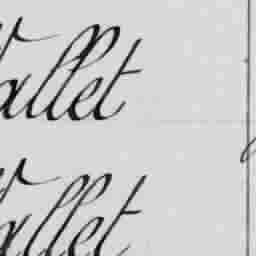 Vallet
Vallet